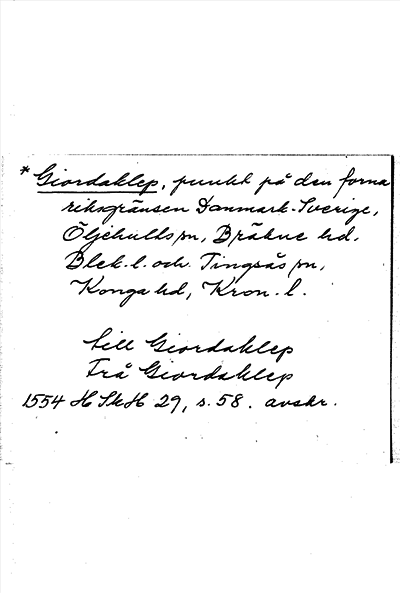 * Giordaklep, punkt på den forna
riksgränsen Danmark-Sverige,
Öljehults sn, Bräkne hd.
Blek. l. och Tingsås sn,
Konga hd, Kron. l.
till Giordaklep
Frå Giordaklep
1554 HSkH 29, s. 58. avskr.